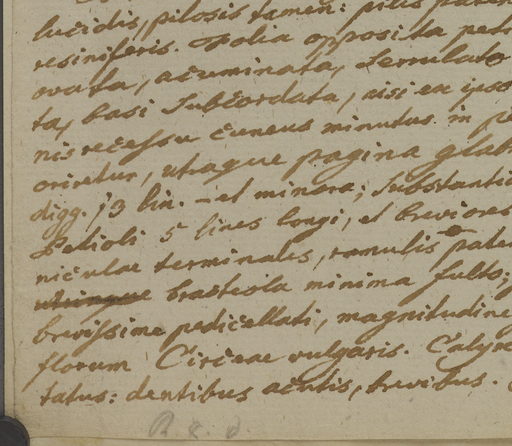 lucidis, pilosis tamen: pilis
resiniferis. Folia opposita
ovata, acuminata, Serrulato
ta, basi Subcordata, nisi ex ipso
nis recessu cuneus minutus in
oriretur, utraque pagina glab
digg. 13 lin. – et minora; Substantia
Petioli 5 lines longi, et breviores
niculae terminales, ramulis pate
bracteola minima fulto;
brevissime pedicellati, magnitudine
florum Circeae vulgaris. Calyx
tatus: dentibus acutis, brevibus.